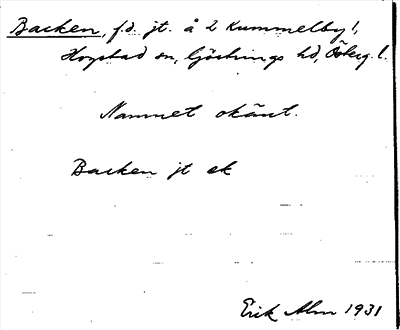 Backen, f.d. jt. å 2 Kummelby!,
Hogstad sn, Göstrings hd, Österg. l.
Namnet okänt.
Backen jt ek
Erik Alm 1931